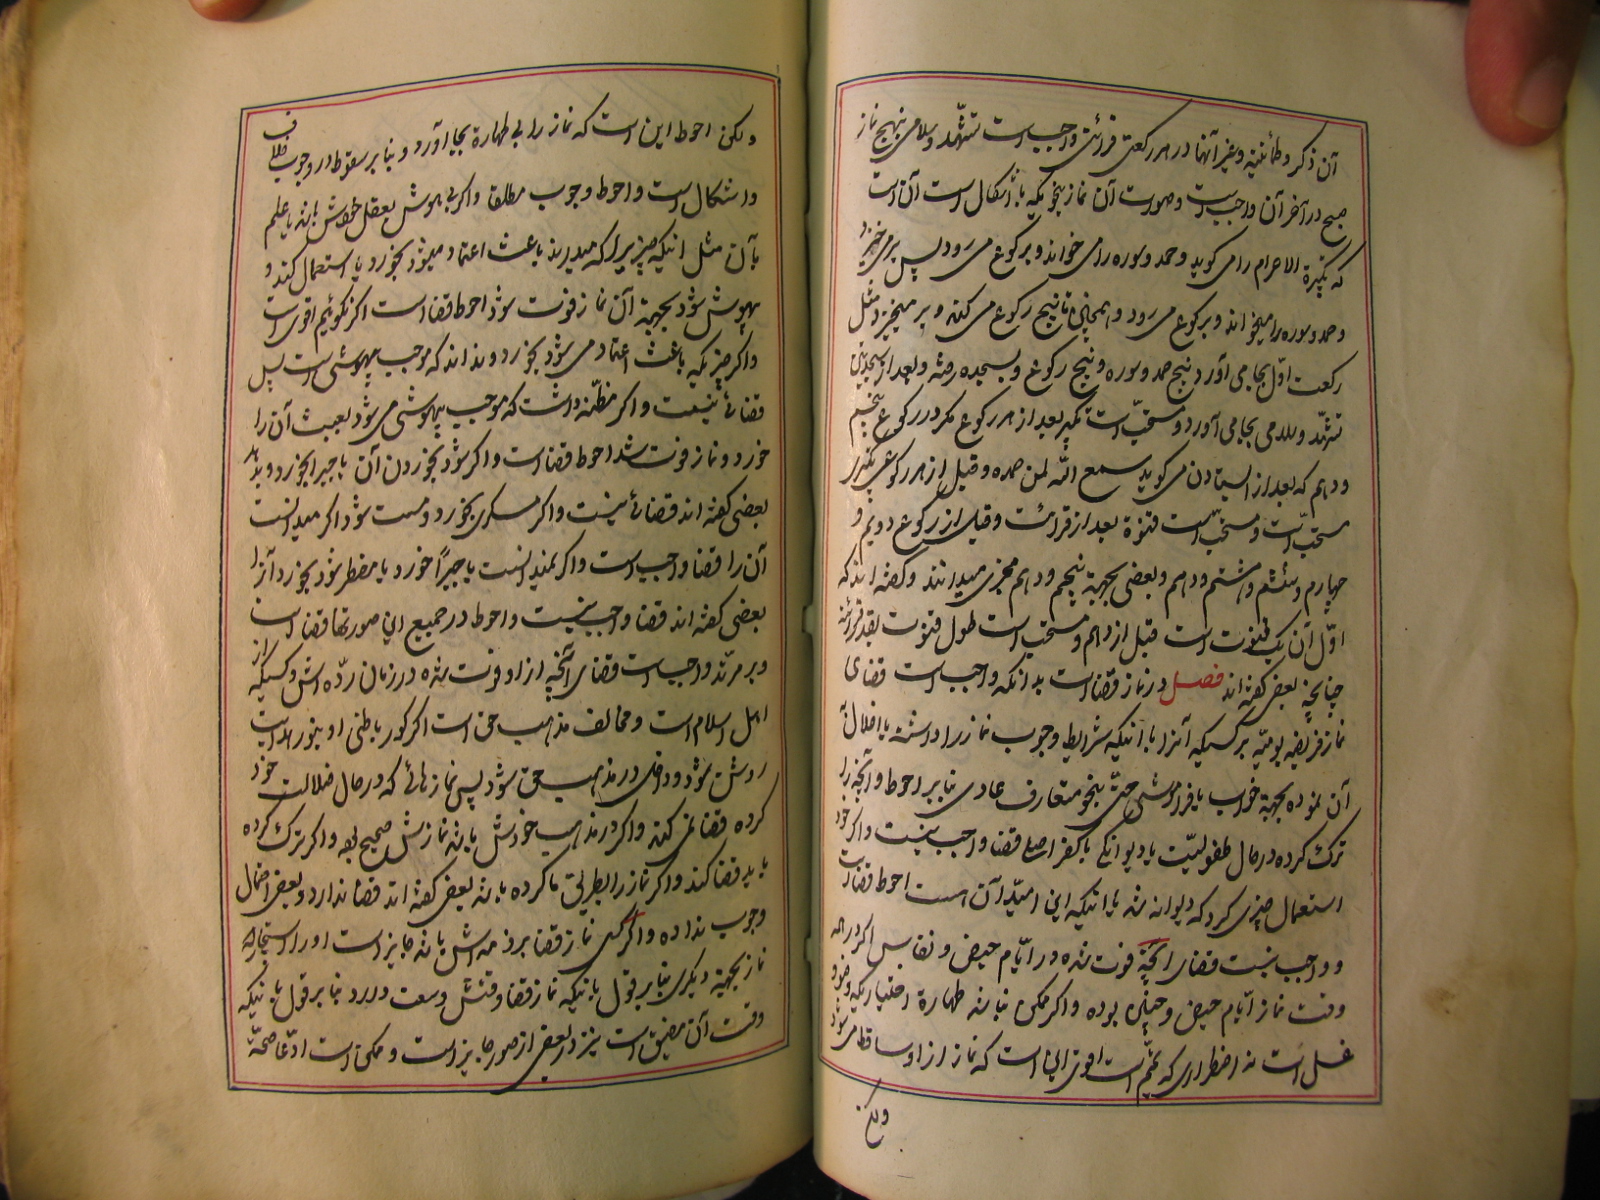 آن ذکر و طمأنینه و غیر آنها در هر رکعتی قرائت واجب است تشهّد و سلامی بنهج نماز
صبح در آخر آن واجبست و صورت آن نماز بنحویکه بی اشکال است آن است
که تکبیرة الاحرام را می گوید و حمد و سوره را می خواند و برکوع می رود پس بر می خیزد
و حمد و سوره را میخواند و برکوع می رود و همچنین تا پنج رکوع می کند و بر میخیزد مثل
رکعت اوّل بجا می آورد پنج حمد و سوره و پنج رکوع و بسجده رفته و بعد از سجدتین
تشهّد و سلامی بجا می آورد و مستحبّ است تکبیر بعد از هر رکوع مگر در رکوع پنجم
و دهم که بعد از ایستادن می گوید سمع الله لمن حمده و قبل از هر رکوعی تکبیر
مستحبّ است و مستحبّ است قنوت بعد از قرائت و قبل از رکوع دویم و
چهارم و ششم و هشتم و دهم و بعضی بجهة پنجم و دهم مجزی میدانند و گفته اند که
اوّل آن یک قنوت است قبل از دهم و مستحب است طول قنوت بقدر قرائت
چنانچه بعضی گفته اند فصل در نماز قضا است بدانکه واجب است قضای
نماز فریضه یومیّه بر کسیکه آنرا با اینکه شرایط وجوب نماز را داشته با اخلال
آن نموده بجهة خواب یا فراموشی حتّی بنحو متعارف عادی بنا بر احوط و آنچه را
ترک کرده در حال طفولیّت یا دیوانگی یا کفر اصلی قضا واجب نیست و اگر خود
استعمال چیزی کرد که دیوانه شد با اینکه این امید آن است احوط قضا است
و واجب نیست قضای آنچه فوت شده در ایّام حیض و نفاس اگر در همه
وقت نماز ایّام حیض و چنان بوده و اگر ممکن نباشد طهارة اختیاریکه وضو و
غسل است نه اضطراری که تیمّم است اقوی این است که نماز از او ساقط می شود
ولکن
ولکن احوط این است که نماز را بی طهارة بجا آورد و بنا بر سقوط در وجوب قضا
و اشکال است و احوط وجوب مطلقا و اگر بی هوش بفعل خودش باشد با علم
بآن مثل اینکه چیزیرا که میداند باعث اغماء میشود بخورد یا استعمال کند و
بیهوش شود بجهة آن نماز فوت شود احوط قضا است اگر نگوئیم اقوی است
و اگر چیزیکه باعث اغماء می شود بخورد و نداند که موجب بیهوشی است پس
قضائی نیست و اگر مظنّه داشت که موجب بیهوشی می شود بعبث آن را
خورد و نماز فوت شد احوط قضا است و اگر شود بخوردن آن یا جبرا بخورد
بعضی گفته اند قضائی نیست و اگر مسکری بخورد و مست شود اگر میدانست
آن را قضا واجب است و اگر نمیدانست یا جبراً خورد یا مضطر شود بخورد آنرا
بعضی گفته اند قضا واجب نیست و احوط در جمیع این صورتها قضا است
و بر مرتد واجب است قضای آنچه از او فوت شده در زمان ردّه اش و کسیکه از
اهل اسلام است و مخالف مذهب حق است اگر کور باطنی او بنور هدایت
روشن شود و داخل در مذهب حق شود پس نمازهائی که در حال ضلالت خود
کرده قضا نمی کند و اگر در مذهب خودش باشد نمازش صحیح بود و اگر ترک کرده
باید قضا کند و اگر نماز را بطریق ما کرده باشد بعضی گفته اند قضا ندارد و بعضی احتمال
وجوب نداده و اگر کسی نماز قضا بر ذمه اش باشد جایز است او را استیجار
نماز بجهة دیگری بنا بر قول باینکه نماز قضا وقتش وسعت دارد بنا بر قول باینکه
وقت آن مضیق است نیز در بعضی از صور جایز است و ممکن است ادّعا صحّة